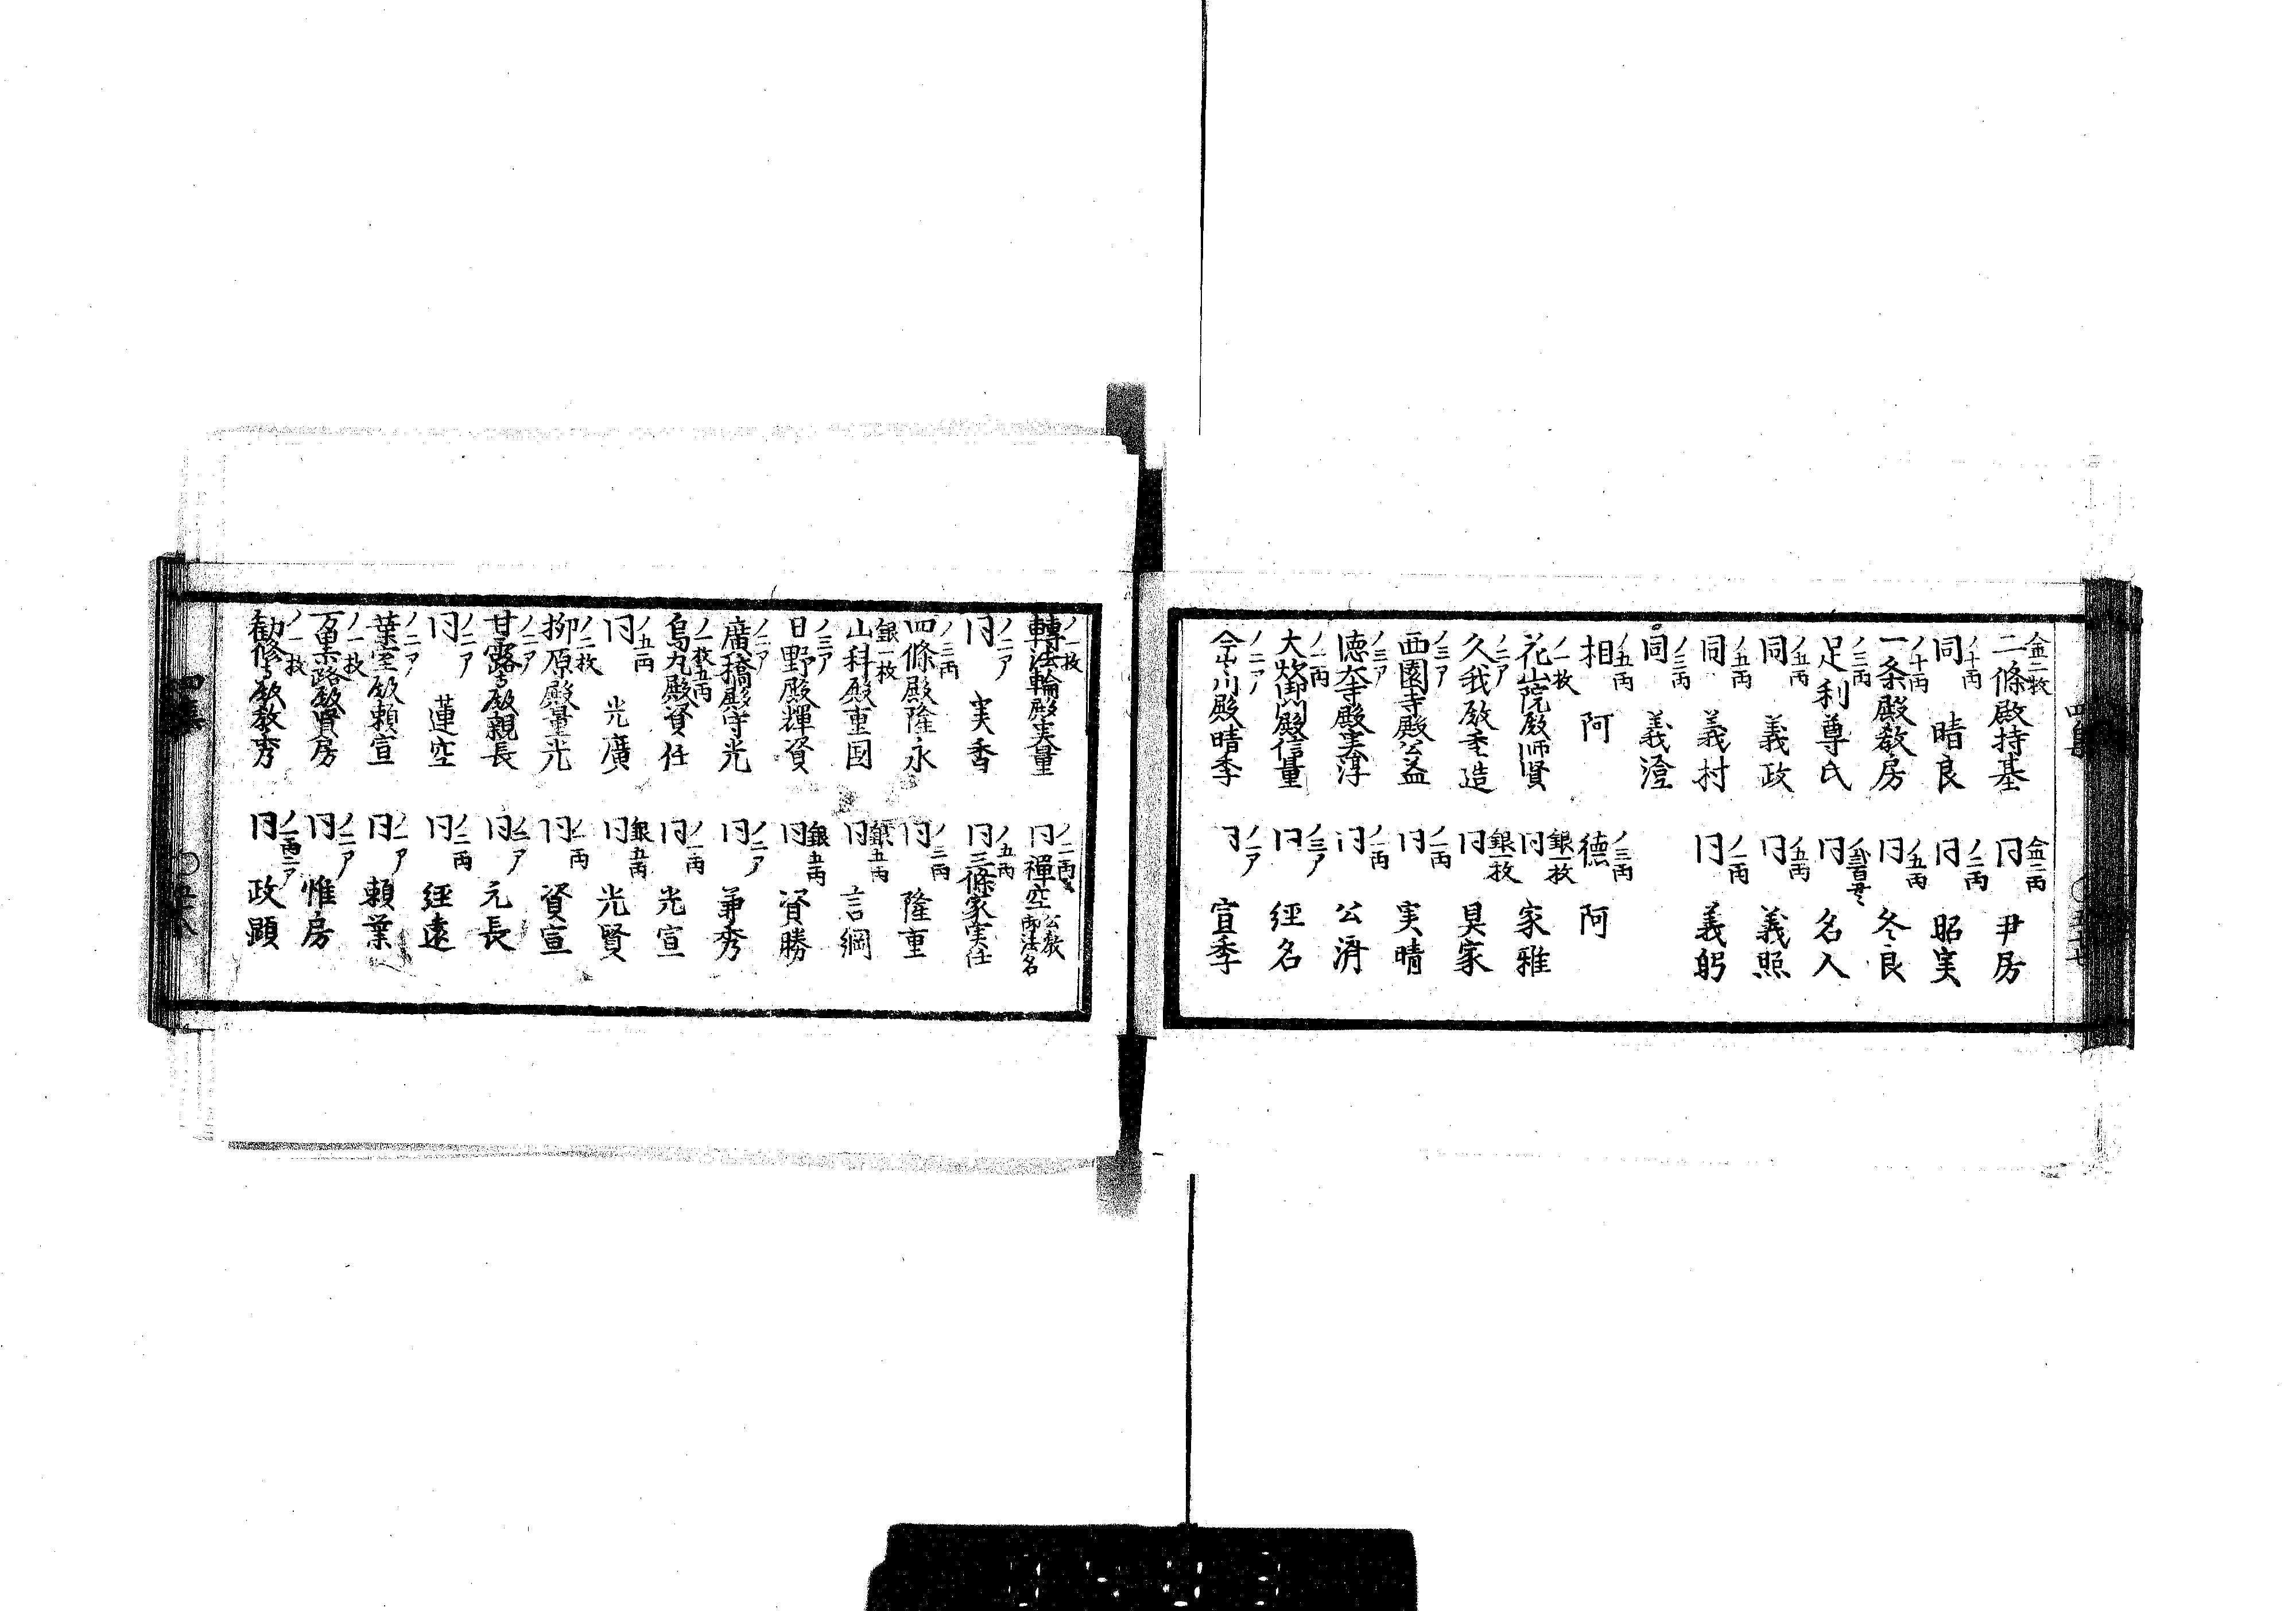 金二枚 二條殿持基 金二両 冃尹房
ノ十両 同 晴良 ノ二両 冃昭実
ノ十両 一条殿教房 ノ五両 冃冬良
ノ三両 足利尊氏 冃名人
ノ五両 同 義政 ノ五両 冃義照
ノ五両 同 義村 ノ一両 冃義躬
ノ三両 同 義澄
ノ五両 相阿 ノ三両 德阿
ノ一枚 花山院殿師賢 銀一枚 冃家雅
ノ二ア 久我殿 銀一枚 冃具家
ノ三ア 西園寺殿公益 ノ一両 冃実晴
ノ三ア 德大寺殿実淳 ノ一両 冃公済
ノ一両 大炊御門殿信量 ノ三ア 冃経名
ノ二ア 今出川殿晴季 ノ二ア 冃宣季
ノ一枚 轉法輪殿実量 ノ二両 冃禪空 公敦御法名
ノ二ア 冃 実香 ノ五両 冃三條家実任
ノ三両 四條殿隆永 ノ三両 冃隆重
銀一枚 山科殿重国 銀五両 冃言綱
ノ三ア 日野殿輝資 銀五両 冃資勝
ノ二ア 廣橋殿守光 ノ二ア 冃兼秀
ノ一枚五両 烏丸殿資任 ノ一両 冃光宣
ノ五両 冃 光廣 銀五両 冃光賢
ノ二枚 柳原殿量光 ノ一両 冃資宣
ノ二ア 甘露寺殿親長 ノ二ア 冃元長
ノ二ア 冃 蓮空 ノ二両 冃経遠
ノ二ア 葉室殿頼宣 ノ一ア 冃頼業
ノ一枚 万里小路殿賢房 ノ二ア 冃惟房
ノ一枚 勧修寺殿教秀 ノ一両二ア 冃政顕